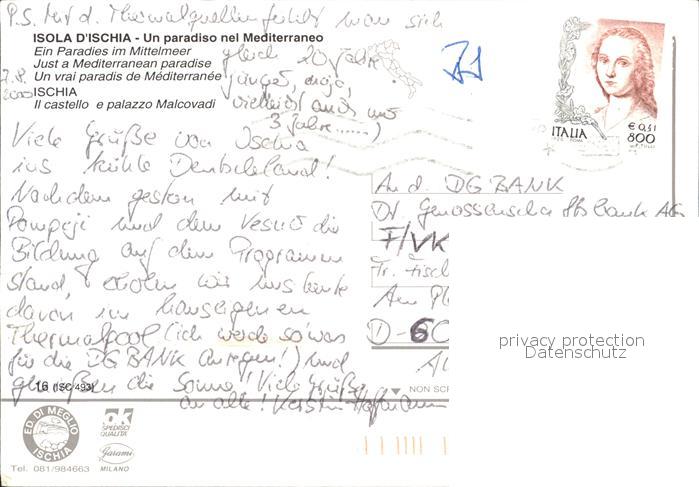 P.S. Mit d. Thermalquellen fühlt man sich
gleich 20 Jahre
jünger, (naja,
vielleicht auch nur
3 Jahre......)
ISOLA D'ISCHIA - Un paradiso nel Mediterraneo
Ein Paradies im Mittelmeer
Just a Mediterranean paradise
Un vrai paradis de Méditerranée
ISCHIA
Il castello e palazzo Malcovadi
7.9.
2000
Viele Grüße von Ischia
ins kühle Deutschland!
Nachdem gestern mit
Pompeji und dem Vesuv die
Bildung auf dem Programm
stand, erholen wir uns heute
davon im hauseigenen
Thermalpool (ich werde so'was
für die DG BANK anregen!) und
genießen die Sonne! Viele Grüße
an alle! Kerstin Hofmann
ITALIA
€ 0,41
800
An d. DG BANK
Dt. Genossenschaftsbank AG
F/VK
Fr. Fisch
Am Pl
D-60
privacy protection
Datenschutz
16 (ISC/493)
NON SCR
ED. DI MEGLIO
ISCHIA
OK
SPEDISCI
QUALITÀ
Garami
MILANO
Tel. 081/984663